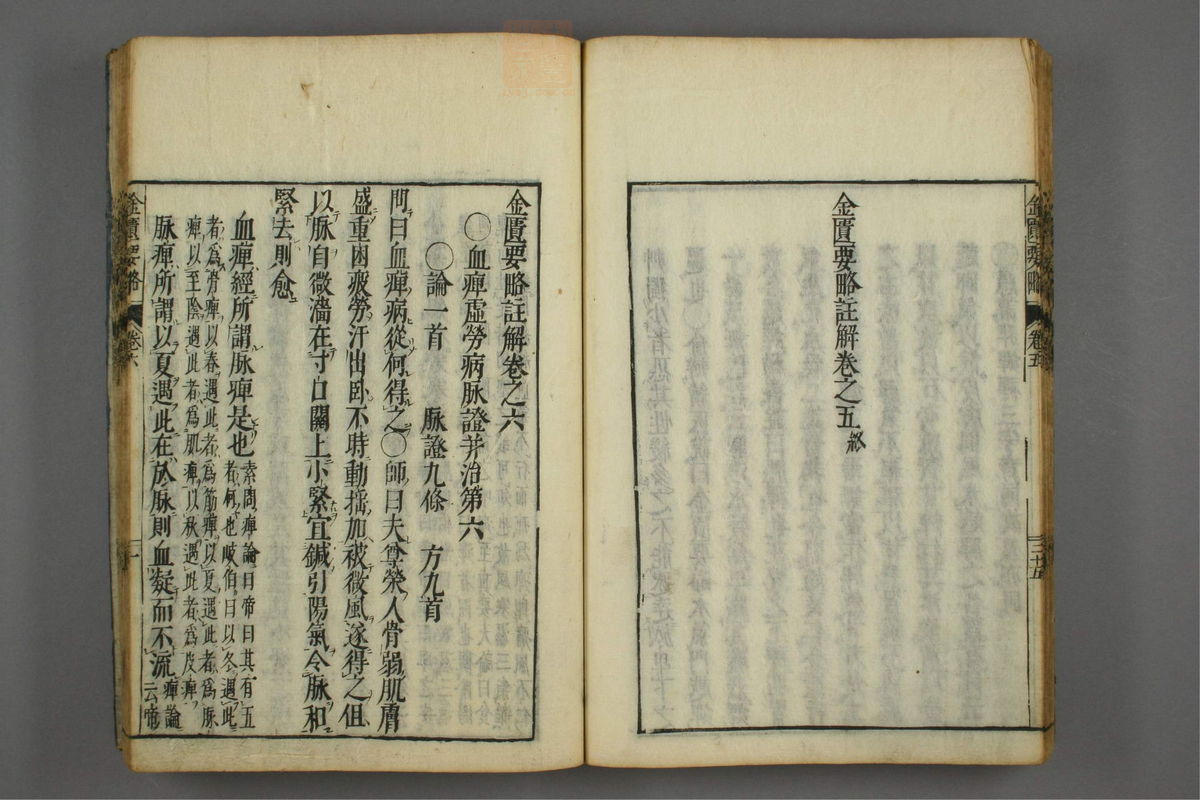 金匱要略
卷五
二十五
金匱要略註解卷之五終
金匱要略註解卷之六
〇血痺虛勞病脉證并治第六
〇論一首　脉證九條　方九首
問曰血痺病從何得之〇師曰夫尊榮人骨弱肌膚
盛重困疲勞汗出卧不時動搖加被微風遂得之但
以脉自微濇在寸口關上小緊宜鍼引陽氣令脉和
緊去則愈
血痺經所謂脉痺是也
素問痺論曰帝曰其有五
者何也岐伯曰以冬遇此
者爲骨痺以春遇此者爲筋痺以夏遇此者爲脉
痺以至陰遇此者爲肌痺以秋遇此者爲皮痺
脉痺所謂以夏遇此在於脉則血凝而不流
痺論
云帝
金匱要略
卷六
一